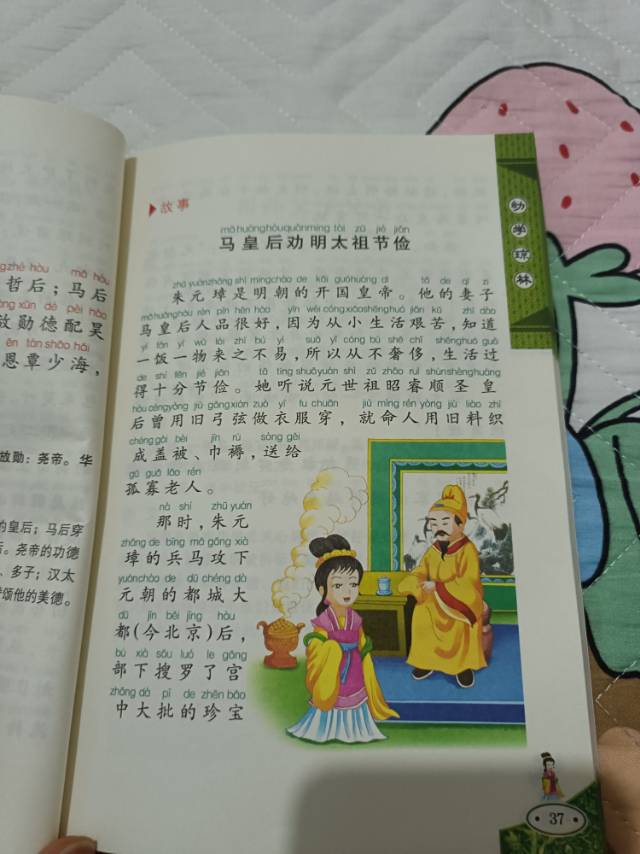 哲后；马后
放勋德配昊
恩覃少海，
放勋：尧帝。华
的皇后；马后穿
后。尧帝的功德
、多子；汉太
颂他的美德。
故事
mǎ huáng hòu quàn míng tài zǔ jié jiǎn
马皇后劝明太祖节俭
zhū yuán zhāng shì míng cháo de kāi guó huáng dì tā de qī zi
朱元璋是明朝的开国皇帝。他的妻子
mǎ huáng hòu rén pǐn hěn hǎo yīn wèi cóng xiǎo shēng huó jiān kǔ zhī dào
马皇后人品很好，因为从小生活艰苦，知道
yí fàn yí wù lái zhī bù yì suǒ yǐ cóng bù shē chǐ shēng huó guò
一饭一物来之不易，所以从不奢侈，生活过
de shí fēn jié jiǎn tā tīng shuō yuán shì zǔ zhāo ruì shùn shèng huáng
得十分节俭。她听说元世祖昭睿顺圣皇
hòu céng yòng jiù gōng xián zuò yī fu chuān jiù mìng rén yòng jiù liào zhī
后曾用旧弓弦做衣服穿，就命人用旧料织
chéng gài bèi jīn rù sòng gěi
成盖被、巾褥，送给
gū guǎ lǎo rén
孤寡老人。
nà shí zhū yuán
那时，朱元
zhāng de bīng mǎ gōng xià
璋的兵马攻下
yuán cháo de dū chéng dà
元朝的都城大
dū jīn běi jīng hòu
都(今北京)后，
bù xià sōu luó le gōng
部下搜罗了宫
zhōng dà pī de zhēn bǎo
中大批的珍宝
幼学琼林
37